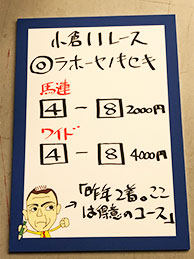 小倉11レース
◎ラホーヤノキセキ
馬連
4-8 2000円
ワイド
4-8 4000円
「昨年2着。ここ
は得意のコース」